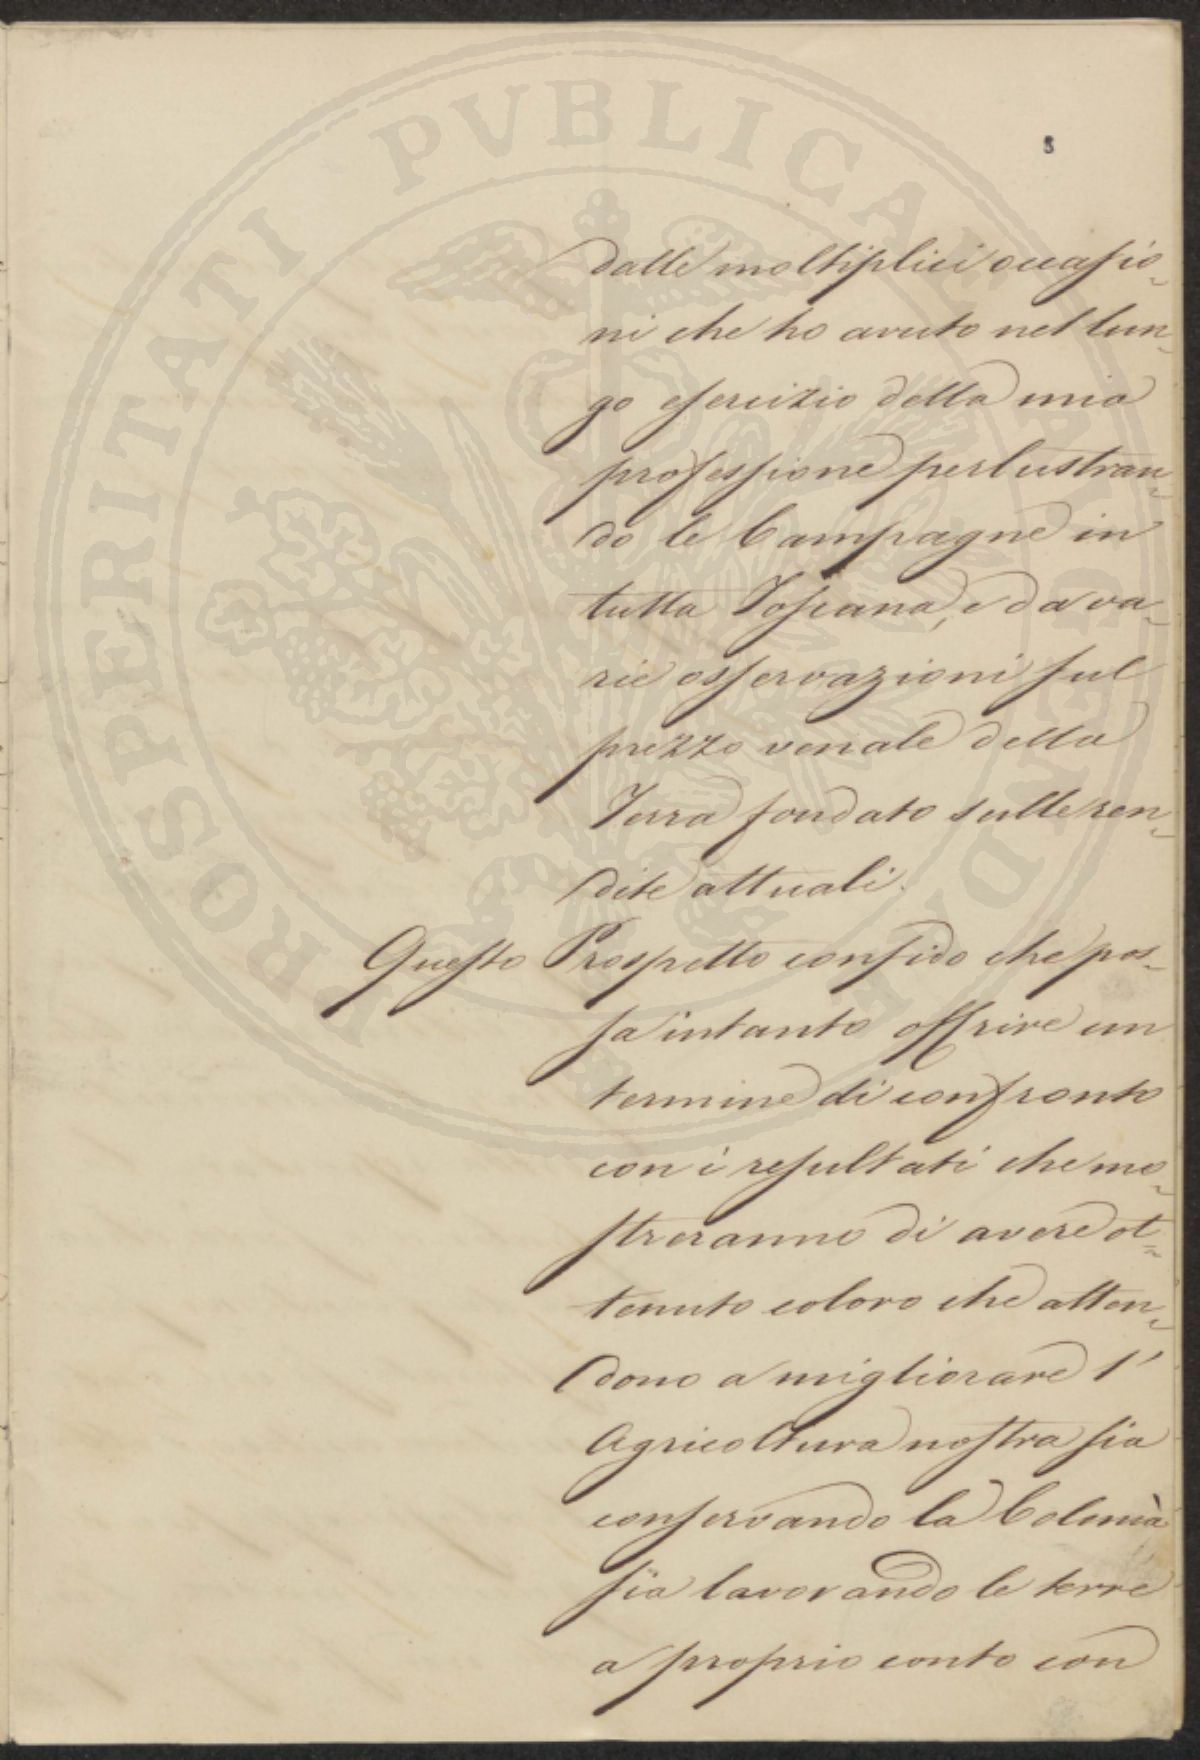 PROSPERITATI PVBLICAE AVGENDAE
dalle moltiplici occasio-
ni che ho avuto nel lun-
go esercizio della mia
professione perlustran-
do le Campagne in
tutta Toscana, e da va-
rie osservazioni sul
prezzo venale della
Terra fondato sulle ren-
dite attuali.
Questo Prospetto confido che pos-
sa intanto offrire un
termine di confronto
con i resultati che mo-
streranno di avere ot-
tenuto coloro che atten-
dono a migliorare l'
Agricoltura nostra sia
conservando la Colonìa
sia lavorando le terre
a proprio conto con